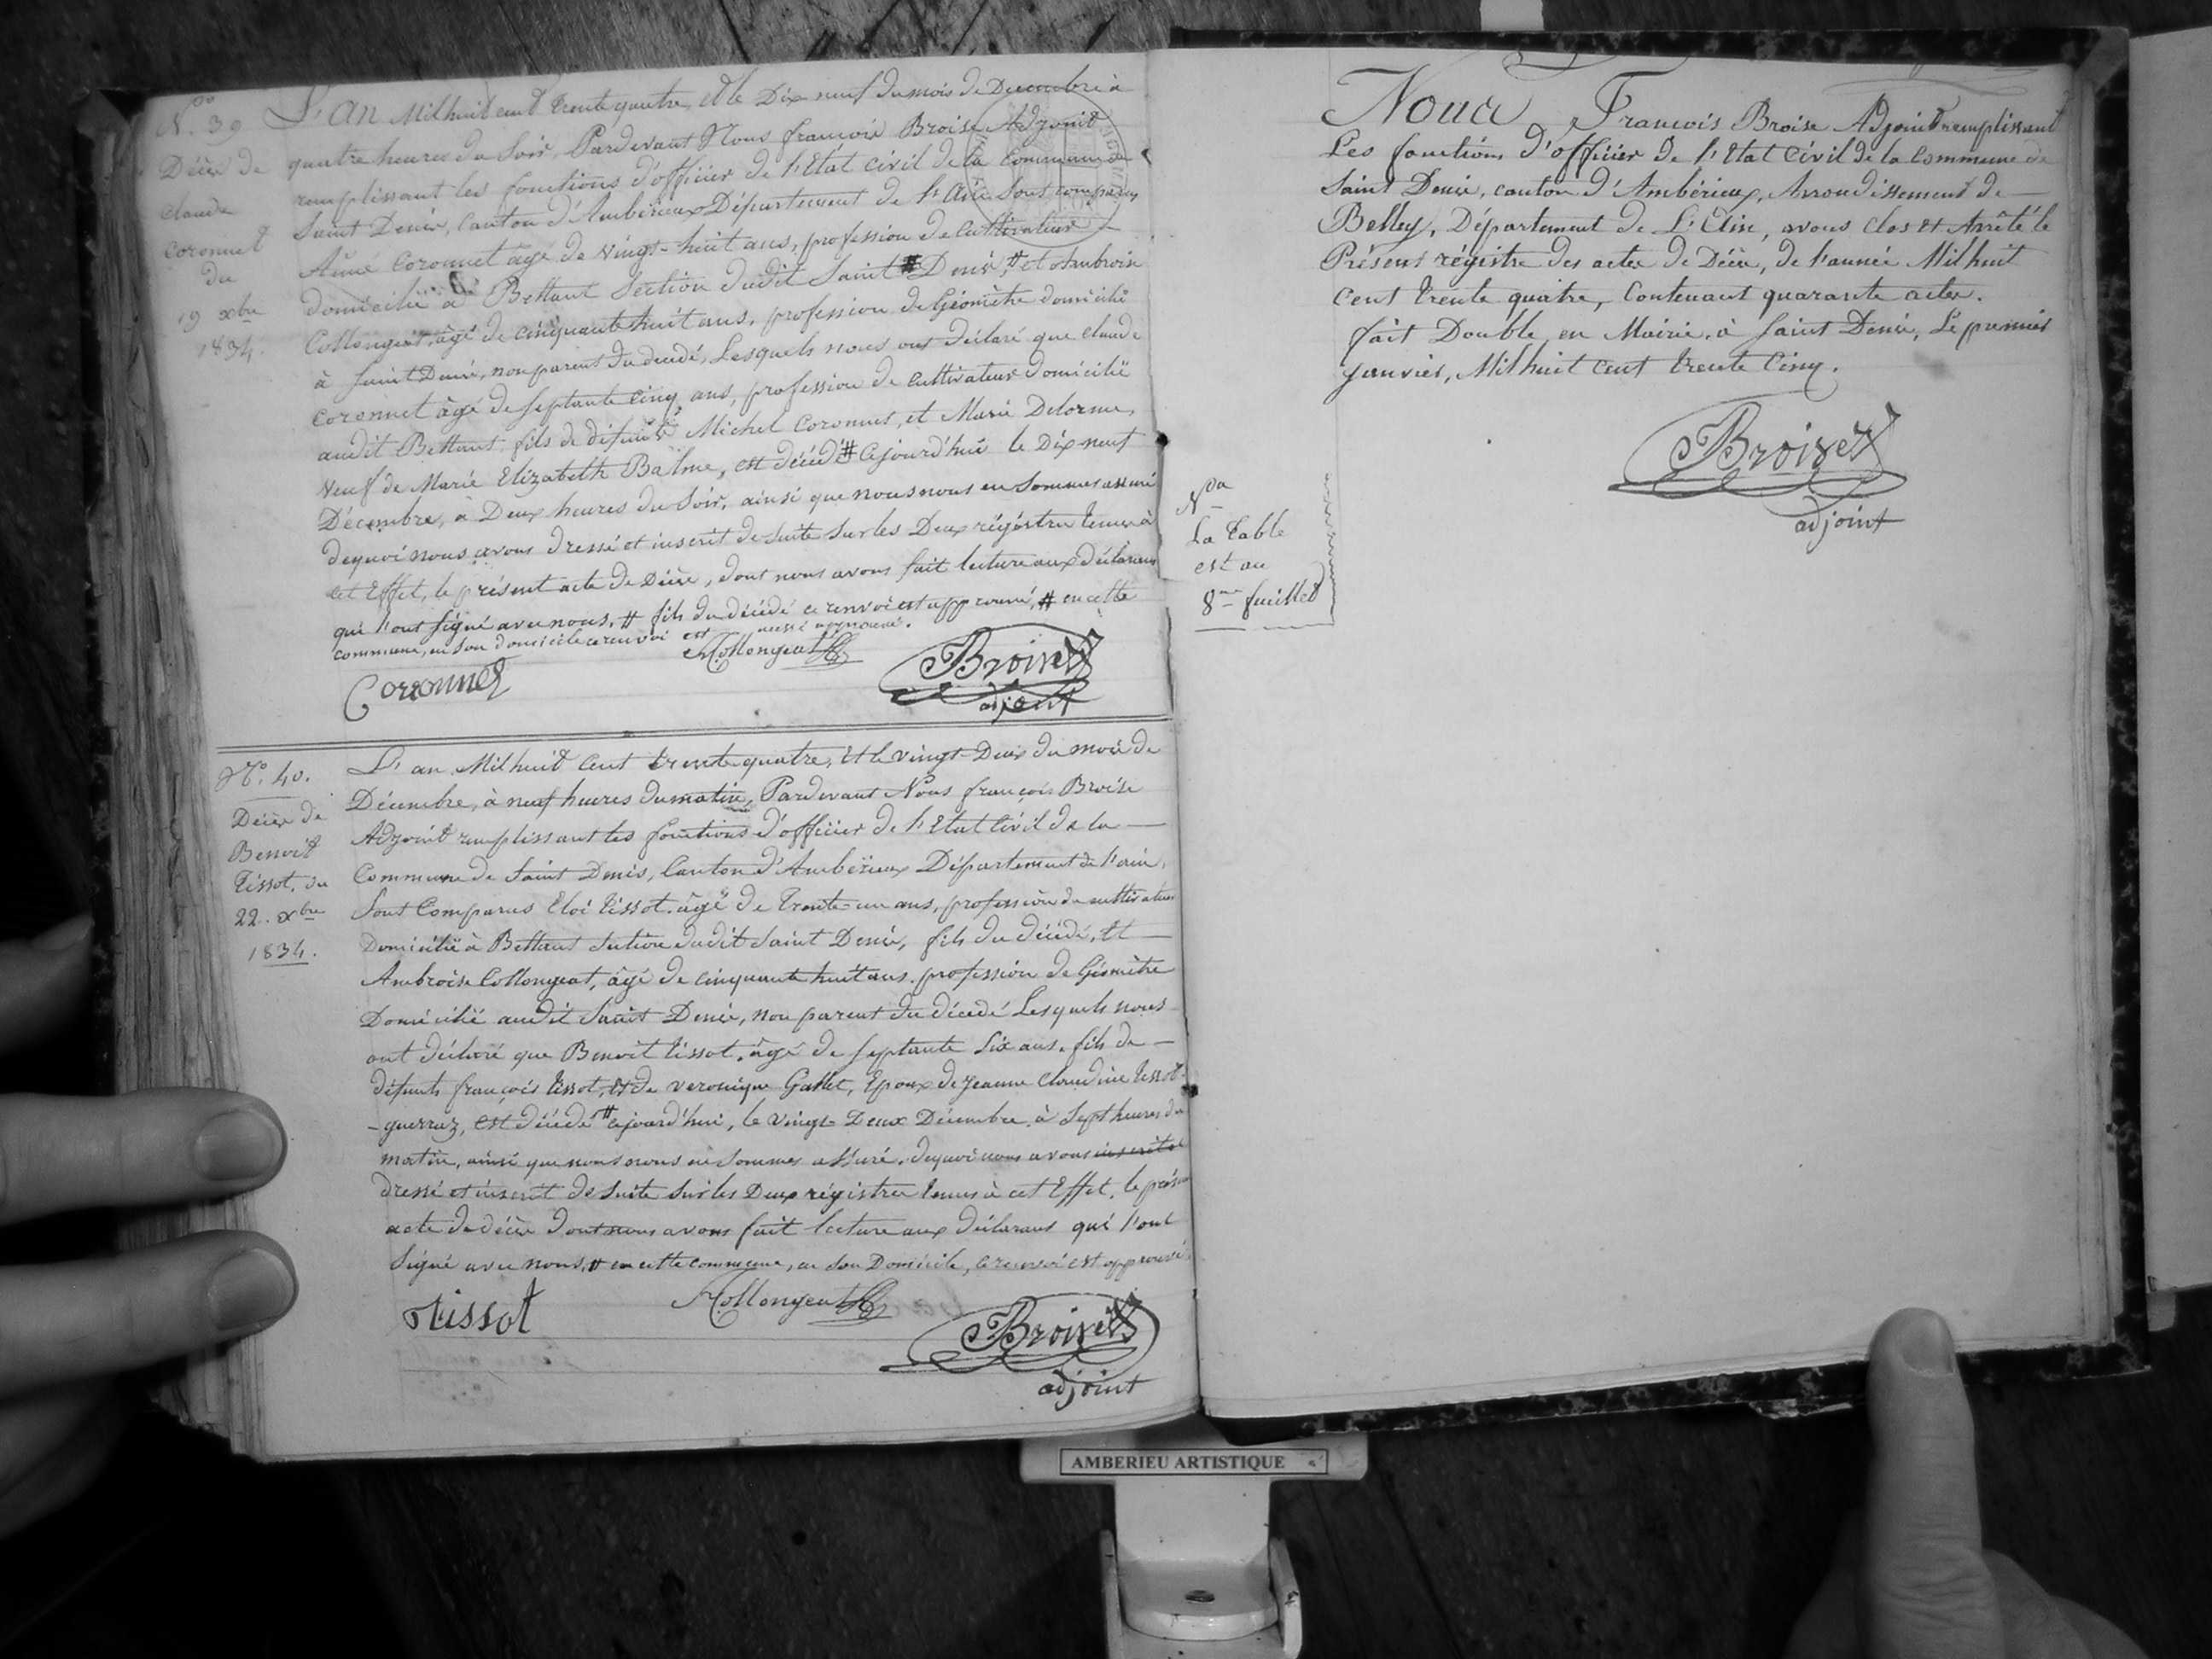 N.° 39
Décès de
Claude
Coronnet
du
19 xbre
1834.
L'An Mil huit cent trente quatre, et le Dix neuf du mois de Décembre à
quatre heures du Soir, Pardevant Nous françois Broise Adjoint
remplissant les fonctions d'officier de l'Etat civil de la Commune de
Saint Denis, Canton d'Ambérieux Département de l'Ain Sont comparus
Aimé Coronnet âgé de vingt-huit ans, profession de Cultivateur
domicilié à Bettant Section dudit Saint Denis, # et Ambroise
Collongeat, âgé de cinquante huit ans, profession de Géomètre domicilié
à Saint Denis, non parent du décédé, Lesquels nous ont déclaré que Claude
Coronnet âgé de septante cinq ans, profession de cultivateur domicilié
audit Bettant, fils de défunts Michel Coronnet, et Marie Delorme,
veuf de Marie Elizabeth Balme, est décédé # Cejourd'hui le Dix neuf
Décembre, à Deux heures du Soir, ainsi que nous nous en sommes assuré
dequoi nous avons dressé et inscrit de suite sur les Deux régistres tenus à
cet Effet, le présent acte de Décès, dont nous avons fait lecture aux déclarans
qui l'ont signé avec nous. # fils du décédé ce renvoi est approuvé, # en cette
commune, en son domicile ce renvoi est aussi approuvé.
Coronnet
A. Collongeat
Broise
adjoint
N.° 40.
Décès de
Benoit
Tissot, du
22. xbre
1834.
L'an Mil huit Cent trente quatre, et le vingt-Deux du mois de
Décembre, à neuf heures du matin, Pardevant Nous françois Broise
Adjoint remplissant les fonctions d'officier de l'Etat Civil de la
Commune de Saint Denis, Canton d'Ambérieux Département de l'ain,
Sont Comparus Eloi Tissot, âgé de trente-un ans, profession de cultivateur
Domicilié à Bettant Section dudit Saint Denis, fils du décédé, et
Ambroise Collongeat, âgé de cinquante huit ans, profession de Géomètre
Domicilié audit Saint Denis, non parent du décédé Lesquels nous
ont déclaré que Benoît Tissot, âgé de septante six ans, fils de
défunts françois Tissot, et de veronique Gallet, Epoux de Jeanne Claudine Tissot-
-guerraz, est décédé # cejourd'hui, le vingt-Deux Décembre, à Sept heures du
matin, ainsi que nous nous en sommes assuré. dequoi nous avons inscrit et
dressé et inscrit de suite sur les Deux régistres tenus à cet Effet, le présent
acte de décès dont nous avons fait lecture aux déclarans qui l'ont
Signé avec nous. # en cette commune, en son Domicile, ce renvoi est approuvé.
Tissot
A. Collongeat
Broise
adjoint
Nous François Broise Adjoint remplissant
Les fonctions d'officier de l'Etat Civil de la Commune de
Saint Denis, canton d'Ambérieux, Arrondissement de
Belley, Département de L'Ain, avons clos et Arrêté le
Présent régistre des actes de Décès, de l'année Mil huit
cent trente quatre, contenant quarante actes.
fait Double en Mairie, à Saint Denis, Le premier
janvier, Mil huit cent trente Cinq.
Broise
adjoint
Nota
La Table
est au
8me feuillet
AMBERIEU ARTISTIQUE